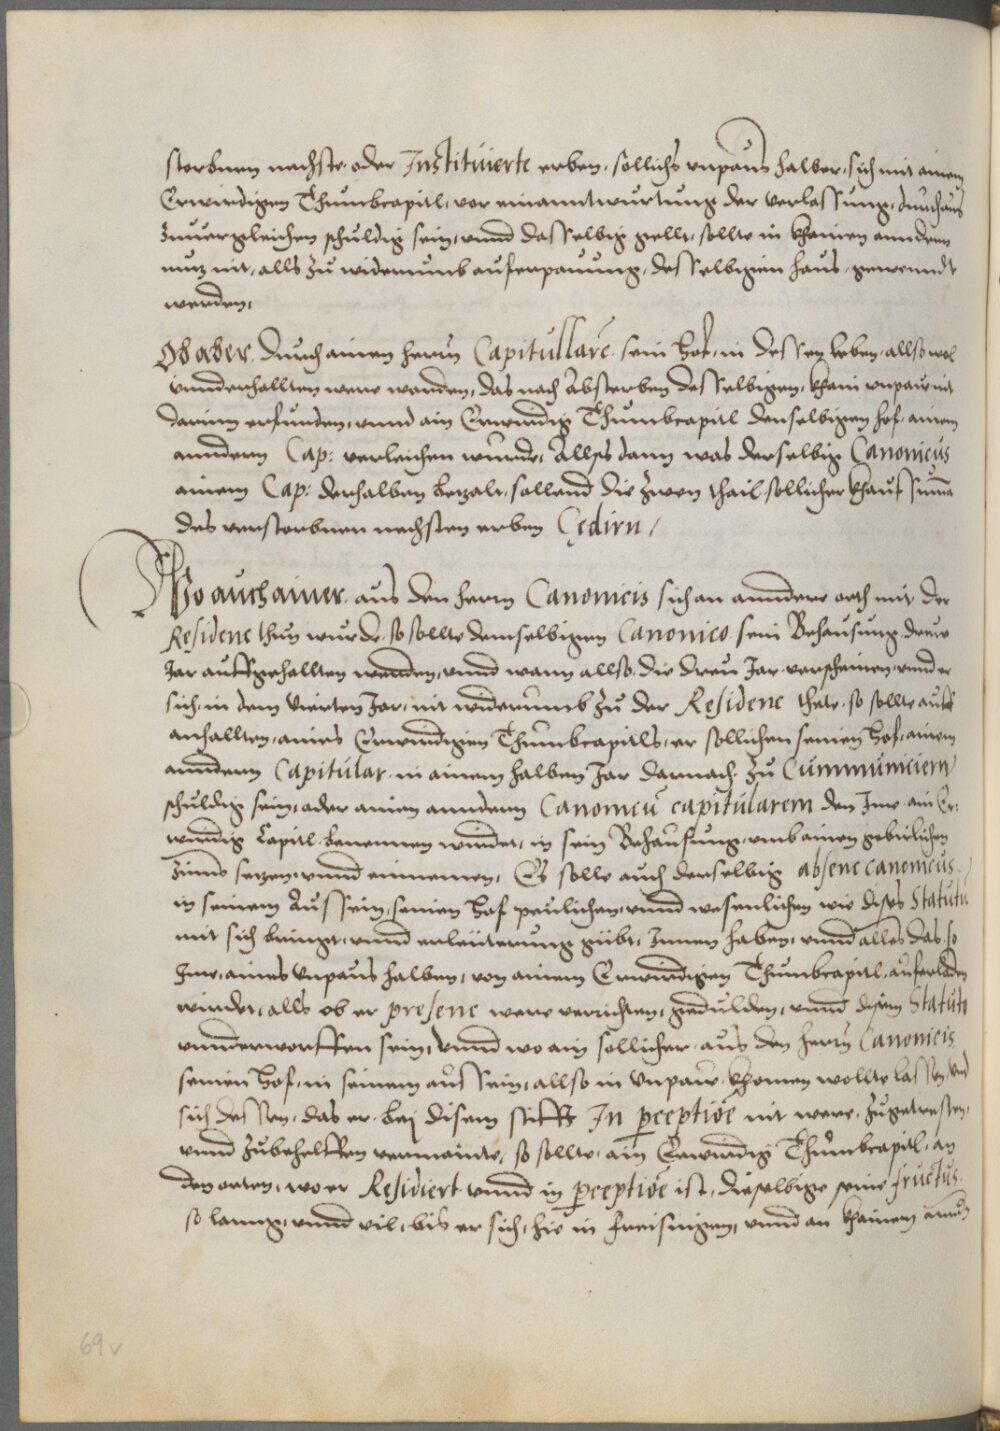 storbnen nechste oder Instituierte erben, sollichs vnpaus halber, sich mit ainem
Erwirdigen Thumbcapitl, vor einanntwurtung der verlassung, durchaus
zuuergleichen schuldig sein, vnnd dasselbig gellt, sollte in khainen anndern
nutz nit, alls zu widerumb auferpauung, desselbigen haus, gewenndt
werden,
Ob aber durch ainen herrn Capitullarē, sein hof, in dessen leben, allso wol
vnnderhallten were worden, das nach Absterben desselbigen, khain vnpaw nit
darinn erfunden, vnnd ain Erwirdig Thumbcapitl denselbigen hof, ainem
anndern Cap: verleichen wurde, Alls dann was derselbig Canonicus
ainem Cap: derhalben bezalt, sollend die zwen thail sollicher khauf Suma
des verstorbnen nechsten erben Cedirn /
Wo auch ainer, aus den herrn Canonicis sich an anndere orth mit der
Residenc thun wurde, so sollte demselbigen Canonico, sein Behausung, dreue
Jar auffgehallten werden, vnnd wann allso, die dreu Jar verscheinen, vnnd er
sich, in dem Vierten Jar, nit widerumb zu der Residenc thete, so sollte auff
anhallten, aines Erwirdigen Thumbcapitls, er sollichen seinen hof, ainem
anndern Capitular, in ainem halben Jar darnach, zu Cummuniciern
schuldig sein, oder ainen anndern Canonicū capitularem den Ime ain Er:
wirdig Capitl benennen wurdet, in sein Behausung, vmb ainen gebürlichen
Zinns setzen, vnnd einnemen, Es solle auch derselbig absenc canonicus
in seinem Aussein, seinen hof peulichen, vnnd wesenlichen wie dises Statutū
mit sich bringt, vnnd erleuterung gibt, Innen haben, vnnd alles das, so
Ime, aines Vnpaus halben, von ainem Erwirdigen Thumbcapitl, auferladen
wirdet, alls ob er presenc were verrichten, gedulden, vnnd disem Statuto
vnnderworffen sein, Vnnd wo ain sollicher aus den herrn Canonicis
seinen hof, in seinem aussein, allso in Vnpaw khomen wollte lassen, vnd
sich dessen, das er bei disem stifft In p̄ceptiōe nit were, zugetresten,
vnnd zubehelffen vermainte, so sollte, ain Erwirdig Thumbcapitl, an
den orten, wo er Residiert vnnd in p̄ceptiōe ist, dieselbige seine fructus
so lanng, vnnd vil, bis er sich, hie in Freisingen, vnnd an khainem annd
69v